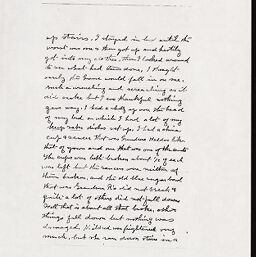 up stairs. I stayed in bed until the
worst was over then got up and hastily
got into my clothes, then I looked around
to see what had been done, I thought
surely the house would fall in on me.
such a wrenching and screeching as it
did make but I am thankful nothing
gave way. I had a shelf up over the head
of my bed on which I had a lot of my
dishes set up. I had a china
cup & saucer that was Grandma
that of yours and one that was one of the aunts
the cups were both broken about ½ of each
was left but the saucers were neither of
them broken, and the old blue sugar bowl
that was Grandma's did not break &
quite a lot of others did not fall down
that is about all that broke, other
things fell down but nothing was
damaged. Mildred was frightened very
much, but she ran down stairs in a